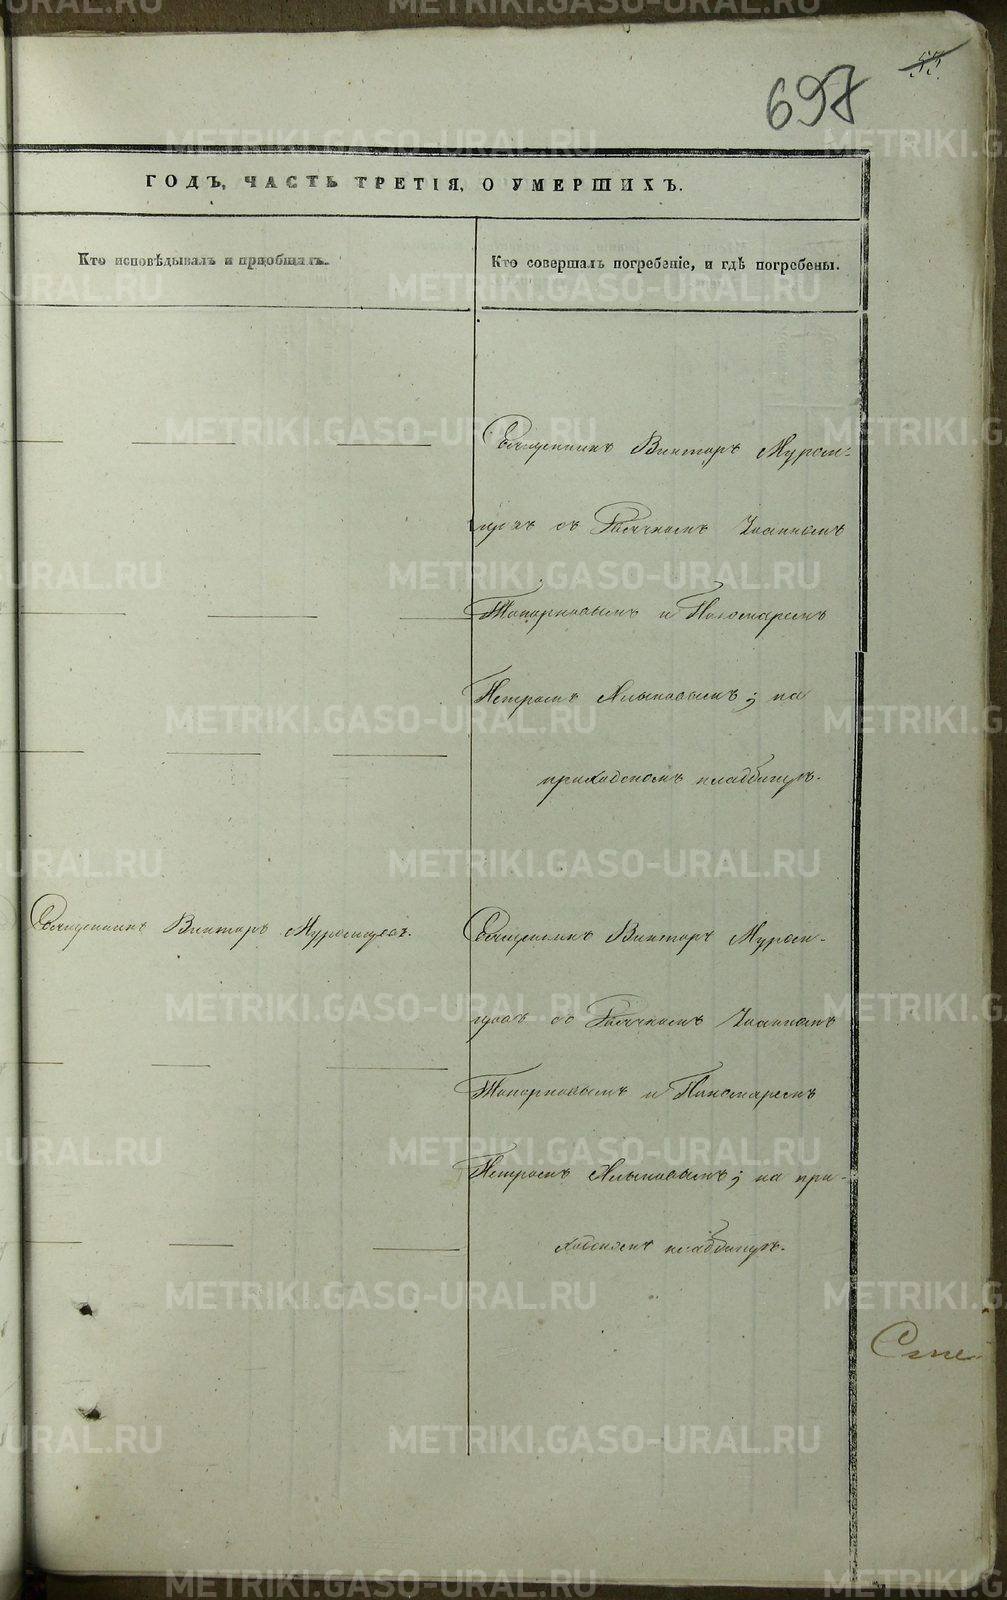 697
55.
ГОДЪ, ЧАСТЬ ТРЕТІЯ, О УМЕРШИХЪ.
Кто исповѣдывалъ и пріобщалъ.
Кто совершалъ погребеніе, и гдѣ погребены.
Священникъ Викторъ Муром-
цовъ съ Дьячкомъ Іоанномъ
Топорковымъ и Пономаремъ
Петромъ Ялыковымъ; на
приходскомъ кладбищѣ.
Священникъ Викторъ Муромцовъ.
Священникъ Викторъ Муром-
цовъ со Дьячкомъ Іоанномъ
Топорковымъ и Пономаремъ
Петромъ Ялыковымъ; на при-
ходскомъ кладбищѣ.
METRIKI.GASO-URAL.RU